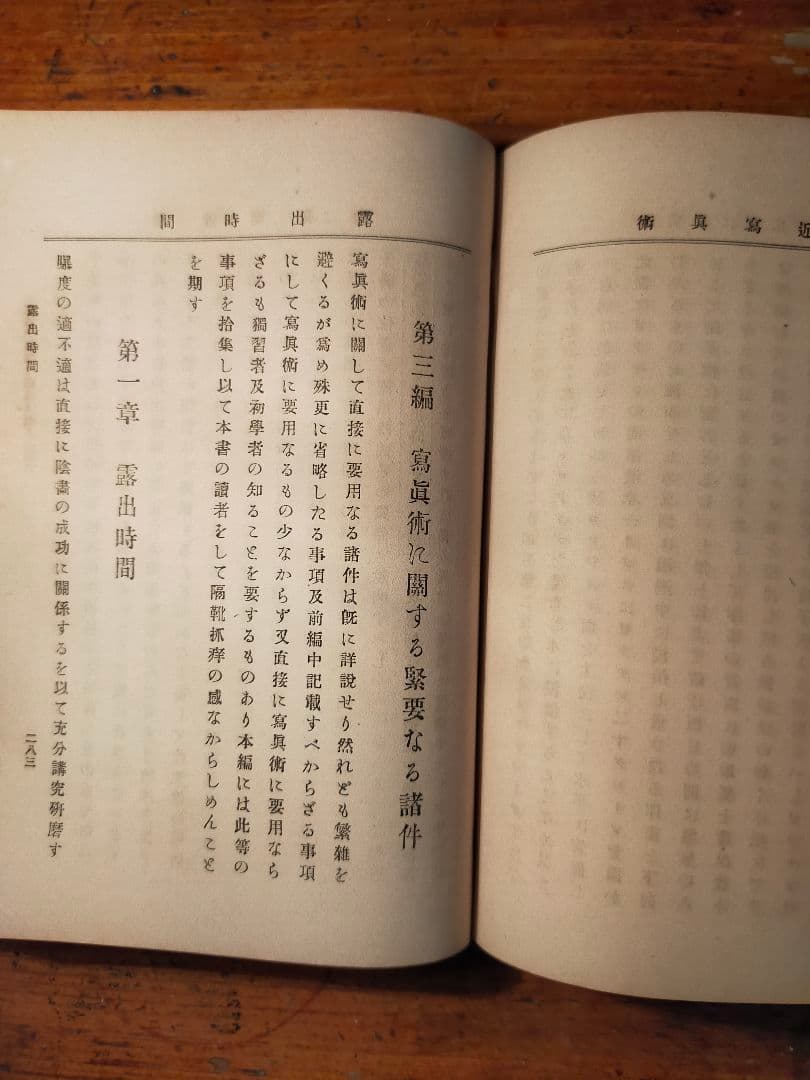 近寫眞術
露出時間
第三編 寫眞術に關する緊要なる諸件
寫眞術に關して直接に要用なる諸件は既に詳說せり然れども繁雜を
避くるが爲め殊更に省略したる事項及前編中記載すべからざる事項
にして寫眞術に要用なるもの少なからず又直接に寫眞術に要用なら
ざるも獨習者及初學者の知ることを要するものあり本編には此等の
事項を拾集し以て本書の讀者をして隔靴抓痒の感なからしめんこと
を期す
第一章 露出時間
曝度の適不適は直接に陰畵の成功に關係するを以て充分講究硏磨す
露出時間
二八三